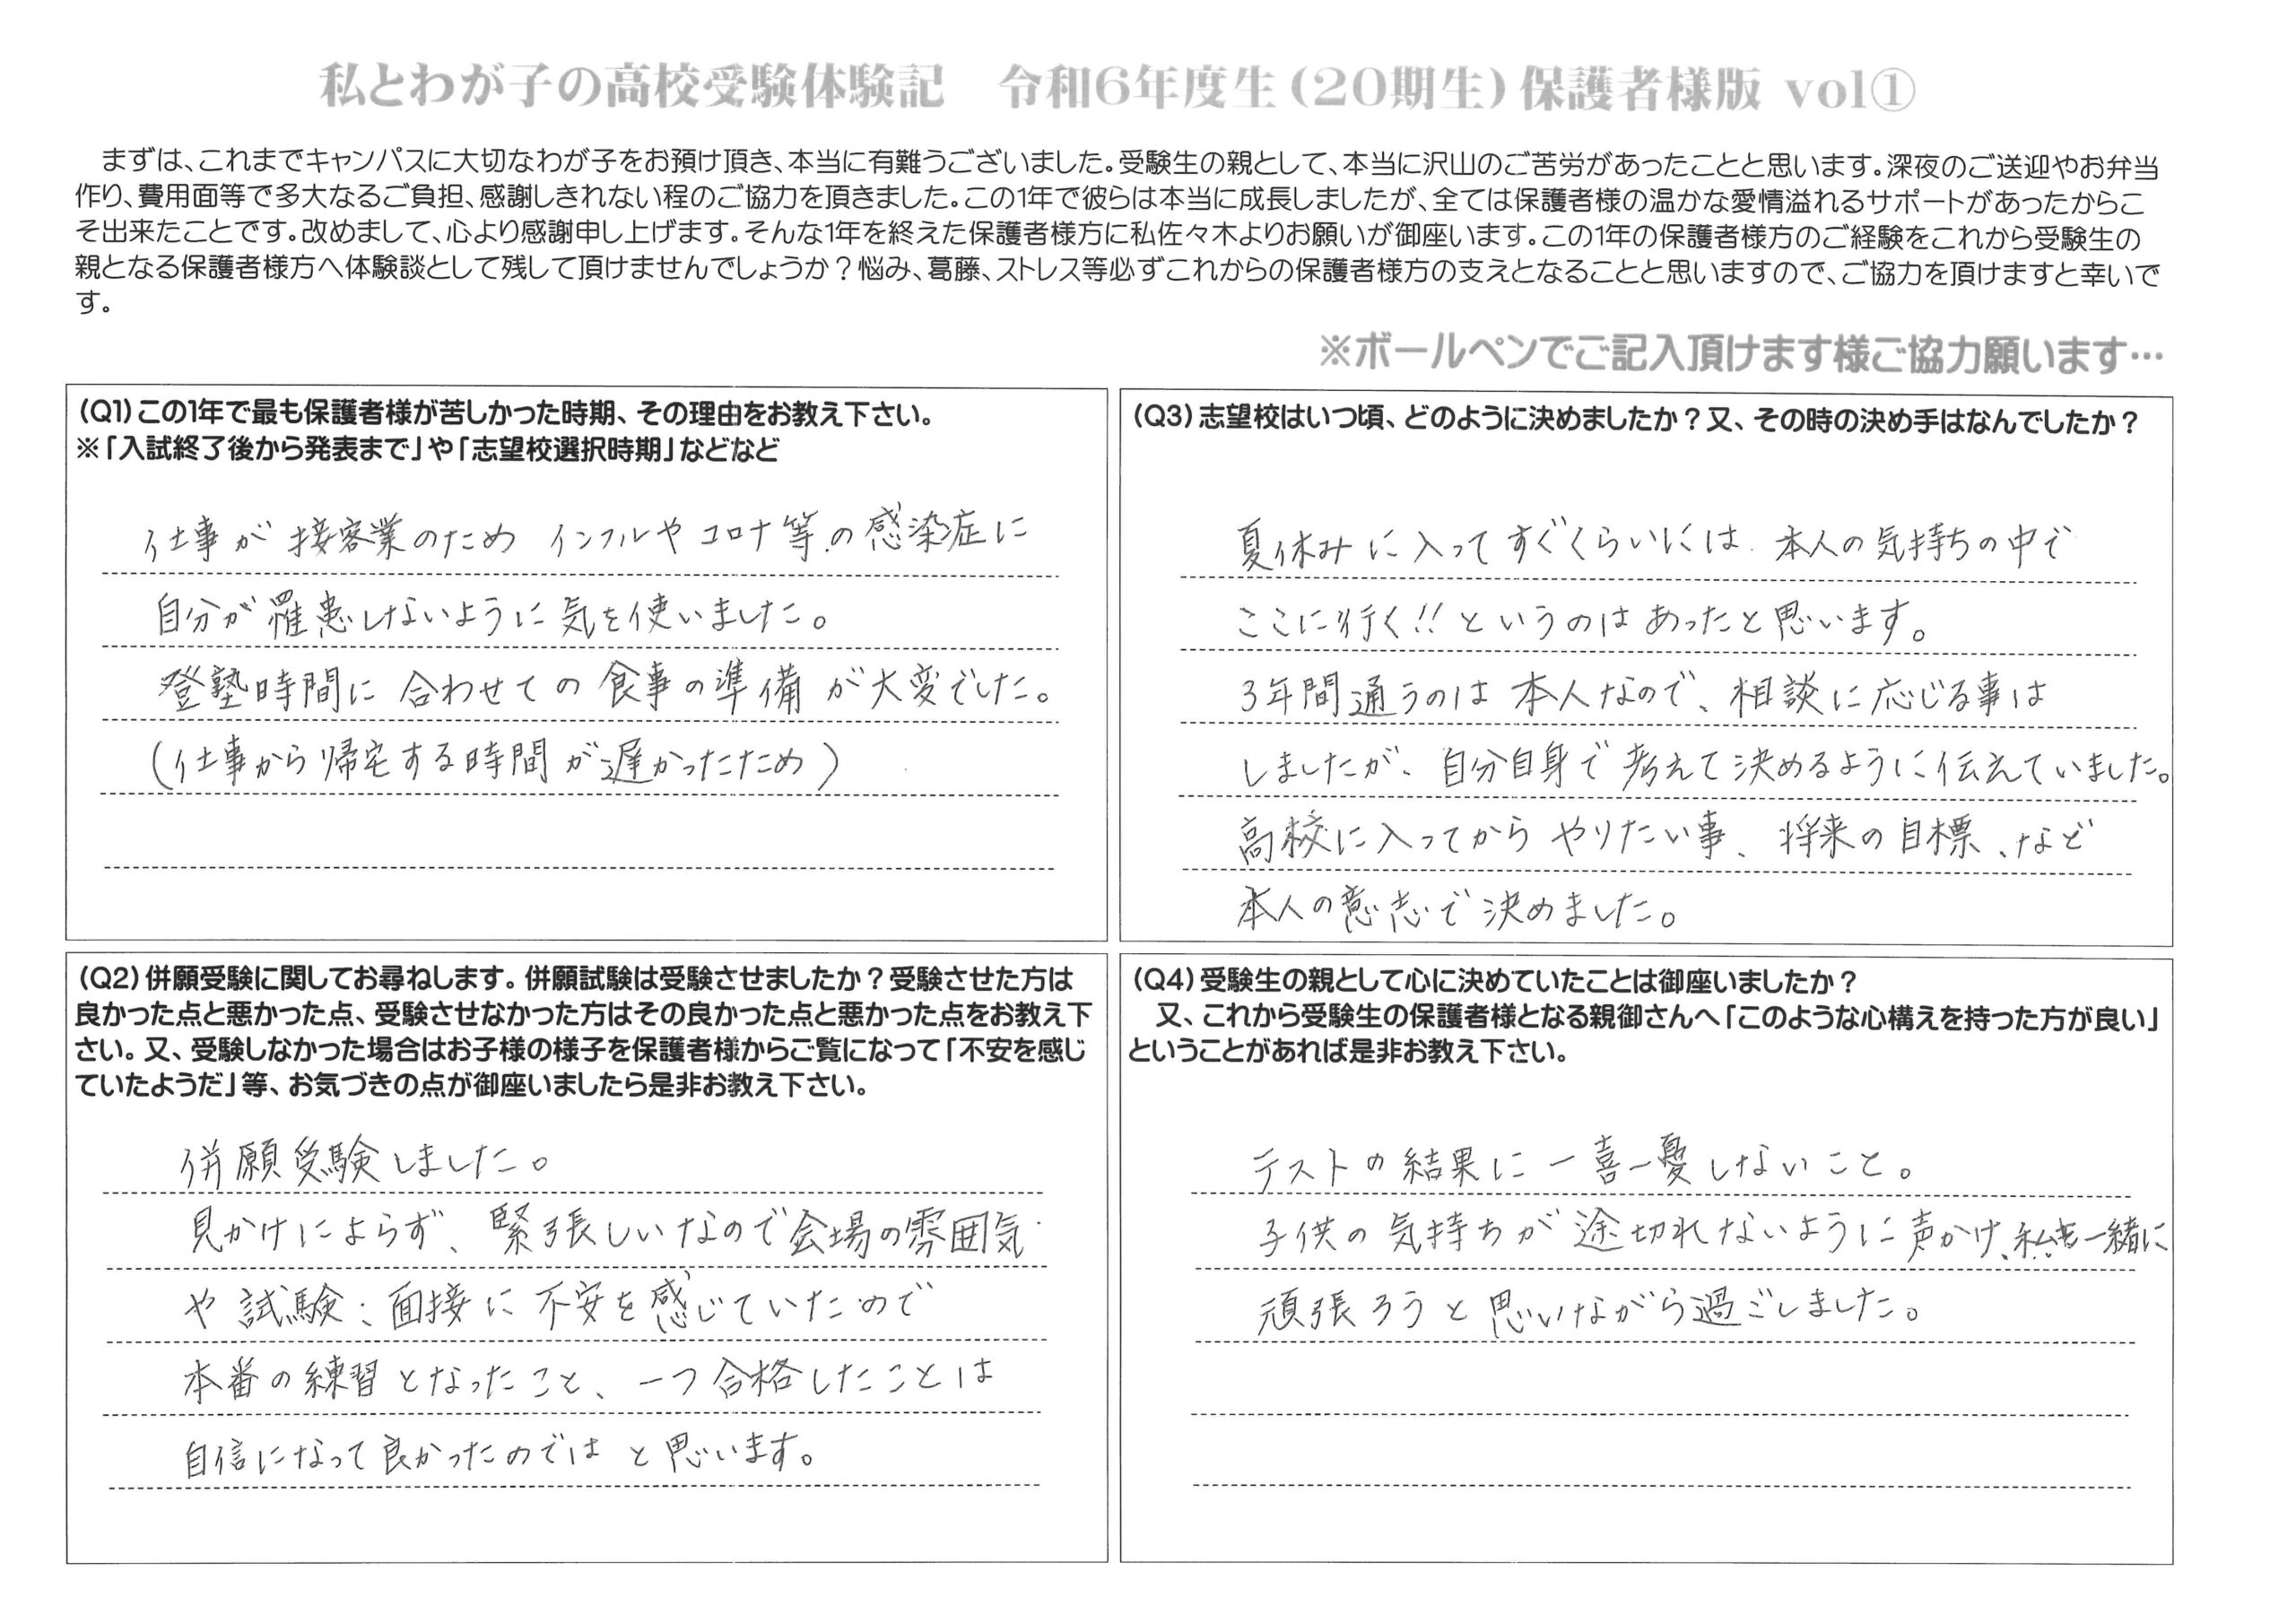 私とわが子の高校受験体験記　令和6年度生（20期生）保護者様版 vol①
まずは、これまでキャンパスに大切なわが子をお預け頂き、本当に有難うございました。受験生の親として、本当に沢山のご苦労があったことと思います。深夜のご送迎やお弁当
作り、費用面等で多大なるご負担、感謝しきれない程のご協力を頂きました。この1年で彼らは本当に成長しましたが、全ては保護者様の温かな愛情溢れるサポートがあったからこ
そ出来たことです。改めまして、心より感謝申し上げます。そんな1年を終えた保護者様方に私佐々木よりお願いが御座います。この1年の保護者様方のご経験をこれから受験生の
親となる保護者様方へ体験談として残して頂けませんでしょうか？悩み、葛藤、ストレス等必ずこれからの保護者様方の支えとなることと思いますので、ご協力を頂けますと幸いで
す。
※ボールペンでご記入頂けます様ご協力願います…
（Q1）この1年で最も保護者様が苦しかった時期、その理由をお教え下さい。
※「入試終了後から発表まで」や「志望校選択時期」などなど
仕事が接客業のため インフルやコロナ等の感染症に
自分が罹患しないように気を使いました。
登塾時間に合わせての食事の準備が大変でした。
（仕事から帰宅する時間が遅かったため）
（Q2）併願受験に関してお尋ねします。併願試験は受験させましたか？受験させた方は
良かった点と悪かった点、受験させなかった方はその良かった点と悪かった点をお教え下
さい。又、受験しなかった場合はお子様の様子を保護者様からご覧になって「不安を感じ
ていたようだ」等、お気づきの点が御座いましたら是非お教え下さい。
併願受験しました。
見かけによらず、緊張しいなので会場の雰囲気
や試験、面接に不安を感じていたので
本番の練習となったこと、一つ合格したことは
自信になって良かったのではと思います。
（Q3）志望校はいつ頃、どのように決めましたか？又、その時の決め手はなんでしたか？
夏休みに入ってすぐくらいには、本人の気持ちの中で
ここに行く!!というのはあったと思います。
3年間通うのは本人なので、相談に応じる事は
しましたが、自分自身で考えて決めるように伝えていました。
高校に入ってからやりたい事、将来の目標、など
本人の意志で決めました。
（Q4）受験生の親として心に決めていたことは御座いましたか？
又、これから受験生の保護者様となる親御さんへ「このような心構えを持った方が良い」
ということがあれば是非お教え下さい。
テストの結果に一喜一憂しないこと。
子供の気持ちが途切れないように声かけ、私も一緒に
頑張ろうと思いながら過ごしました。